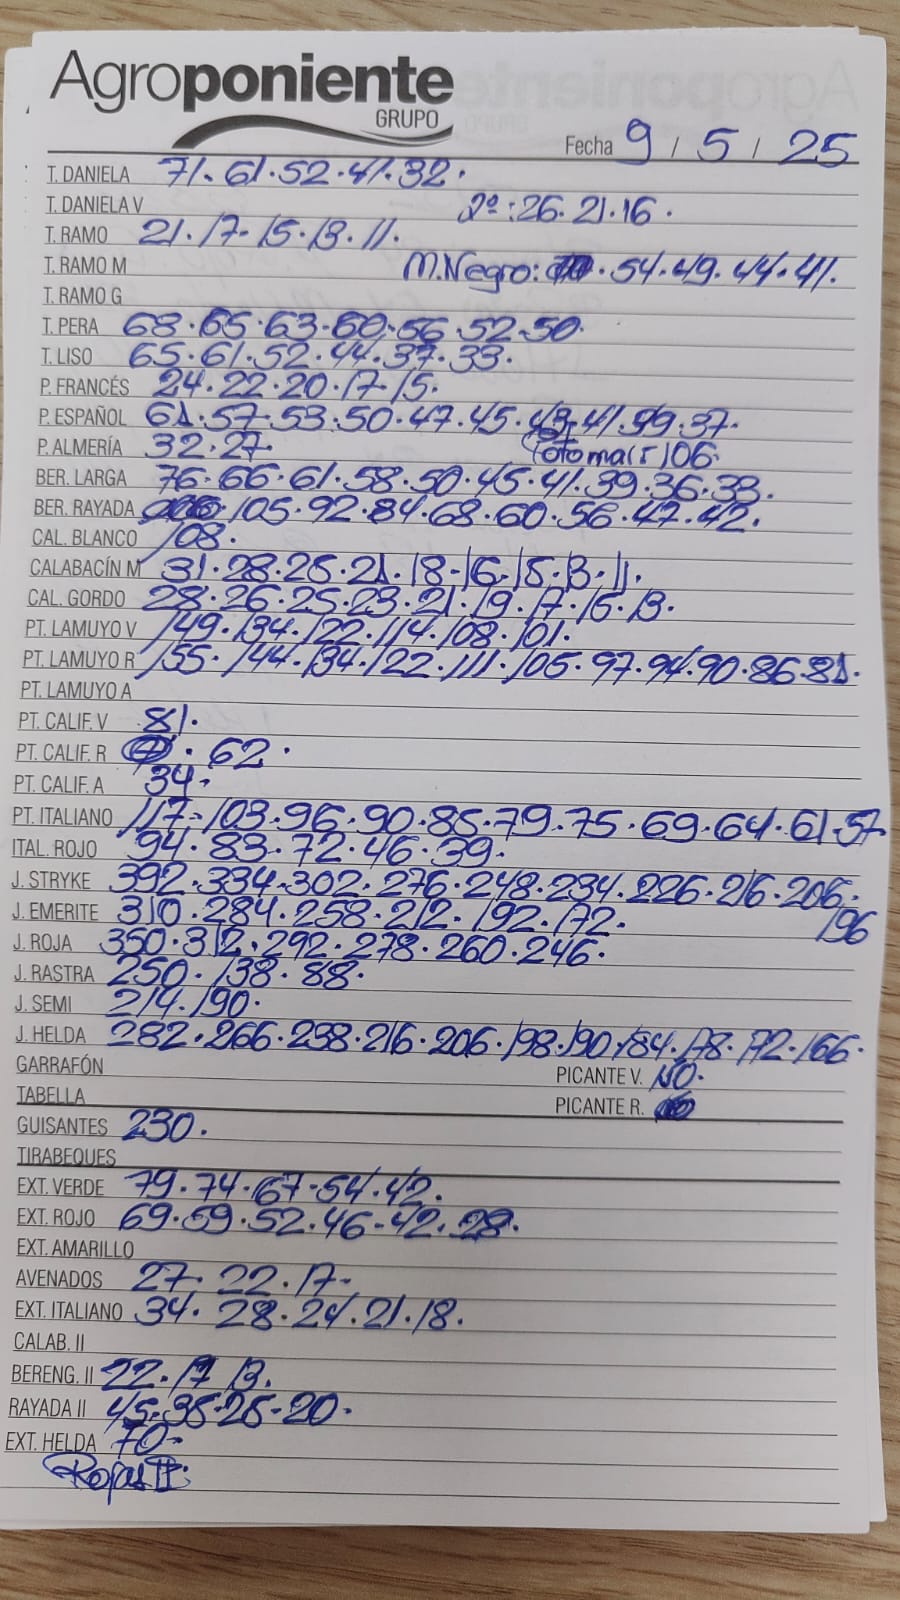 Agroponiente
GRUPO
Fecha 9 / 5 / 25
T. DANIELA 71.61.52.41.32.
T. DANIELA V 2ª:26.21.16.
T. RAMO 21.17.15.13.11.
T. RAMO M M.Negro: .54.49.44.41.
T. RAMO G
T. PERA 68.65.63.60.56.52.50.
T. LISO 65.61.52.44.37.33.
P. FRANCÉS 24.22.20.17.15.
P. ESPAÑOL 61.57.53.50.47.45.43.41.39.37.
P. ALMERÍA 32.27. 106.
BER. LARGA 76.66.61.58.50.45.41.39.36.33.
BER. RAYADA .105.92.84.68.60.56.47.42.
CAL. BLANCO 108.
CALABACÍN M 31.28.25.21.18.16.15.13.11.
CAL. GORDO 28.26.25.23.21.19.17.15.13.
PT. LAMUYO V 149.134.122.114.108.101.
PT. LAMUYO R 155.144.134.122.111.105.97.94.90.86.81.
PT. LAMUYO A
PT. CALIF. V 81.
PT. CALIF. R .62.
PT. CALIF. A 34.
PT. ITALIANO 117.103.96.90.85.79.75.69.64.61.57
ITAL. ROJO 94.83.72.46.39.
J. STRYKE 392.334.302.276.248.234.226.216.206.
196
J. EMERITE 310.284.258.212.192.172.
J. ROJA 350.312.292.278.260.246.
J. RASTRA 250.138.88.
J. SEMI 214.190.
J. HELDA 282.266.238.216.206.198.190.184.178.172.166.
GARRAFÓN PICANTE V. NO.
TABELLA PICANTE R.
GUISANTES 230.
TIRABEQUES
EXT. VERDE 79.74.67.54.42.
EXT. ROJO 69.59.52.46.42.28.
EXT. AMARILLO
AVENADOS 27.22.17.
EXT. ITALIANO 34.28.24.21.18.
CALAB. II
BERENG. II 22.17.13.
RAYADA II 45.35.25.20.
EXT. HELDA 70.
Rojas II: